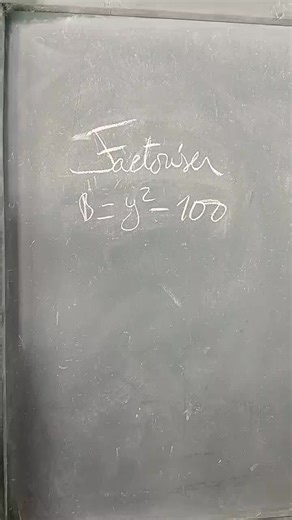 Factoriser
B = y² - 100